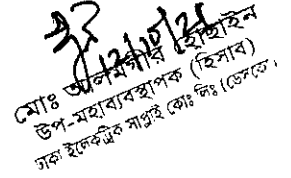 ১২/১০/২১
মোঃ আলমগীর হোছাইন
উপ-মহাব্যবস্থাপক (হিসাব)
ঢাকা ইলেকট্রিক সাপ্লাই কোঃ লিঃ (ডেসকো)